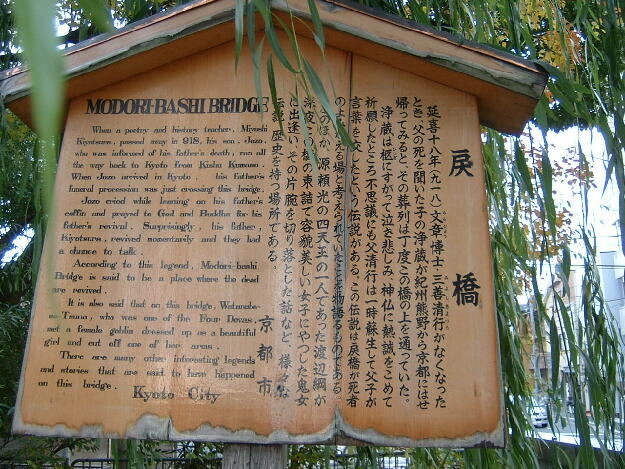 戻橋
延喜十八年(九一八)文章博士三善清行がなくなった
とき、父の死を聞いた子の浄蔵が紀州熊野から京都にはせ
帰ってみると、その葬列は丁度この橋の上を通っていた。
浄蔵は柩にすがって泣き悲しみ、神仏に熱誠をこめて
祈願したところ不思議にも父清行は一時蘇生して父子が
言葉を交したという伝説がある。この伝説は戻橋が死者
のよみがえる場と考えられていたことを物語るものである
のほか、源頼光の四天王の一人であった渡辺綱が
深夜この橋の東詰で容貌美しい女子にやつした鬼女
に出逢い、その片腕を切り落とした話など、様々な
伝説、歴史を持つ場所である。
京都市
MODORI-BASHI BRIDGE
When a poetry and history teacher, Miyoshi
Kiyotsura, passed away in 918, his son, Jozo,
who was informed of his father's death, ran all
the way back to Kyoto from Kishu Kumano.
When Jozo arrived in Kyoto, his father's
funeral procession was just crossing this bridge.
Jozo cried while leaning on his father's
coffin and prayed to God and Buddha for his
father's revival. Surprisingly, his father,
Kiyotsura, revived momentarily and they had
a chance to talk.
According to this legend, Modori-bashi
Bridge is said to be a place where the dead
are revived.
It is also said that on this bridge, Watanabe-
no Tsuna, who was one of the Four Devas,
met a female goblin dressed up as a beautiful
girl and cut off one of her arms.
There are many other interesting legends
and stories that are said to have happened
on this bridge.
Kyoto City